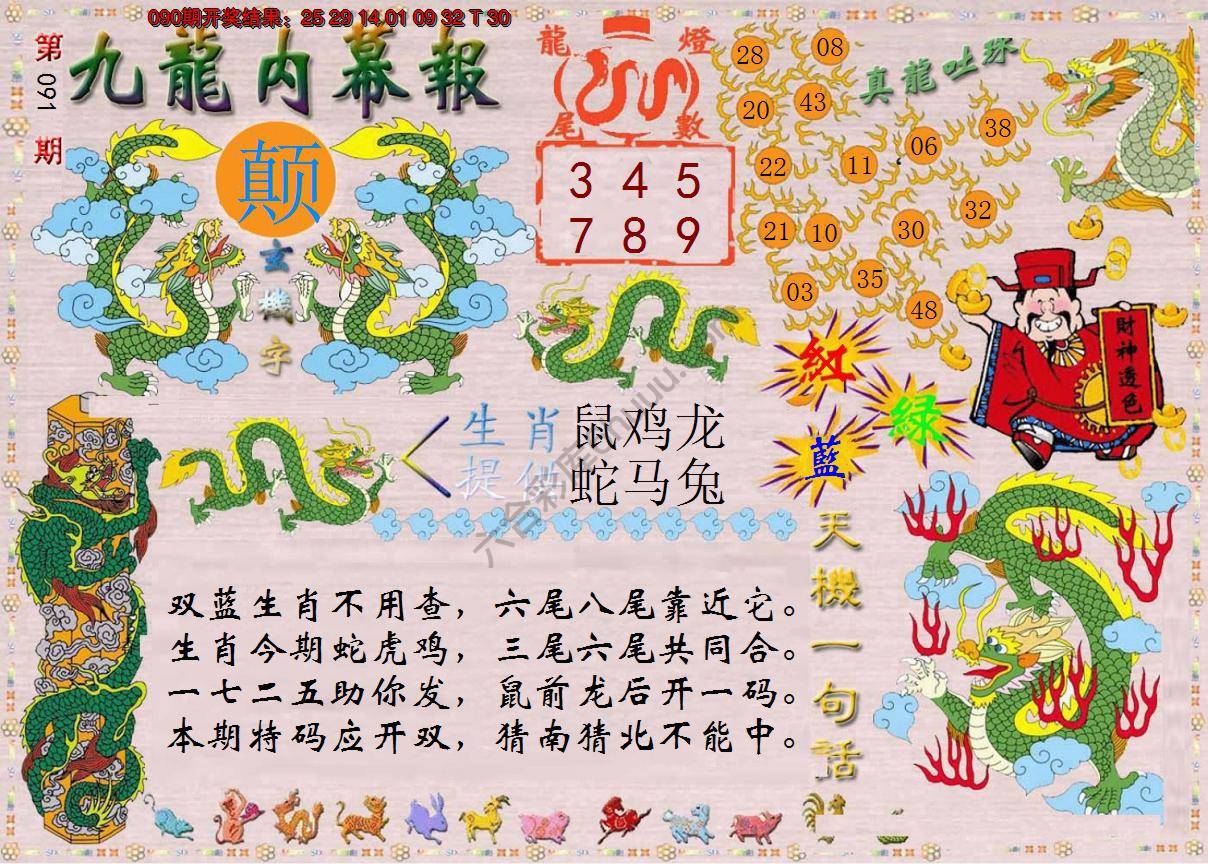 090期开奖结果：25 29 14 01 09 32 T 30
第091期
九龍内幕報
颠
玄機字
龍燈
尾數
3 4 5
7 8 9
真龍吐珠
28 08
20 43
22 11 06 38
21 10 30 32
03 35 48
財神透色
紅
綠
藍
生肖 鼠鸡龙
提供 蛇马兔
天機一句話
双蓝生肖不用查，六尾八尾靠近它。
生肖今期蛇虎鸡，三尾六尾共同合。
一七二五助你发，鼠前龙后开一码。
本期特码应开双，猜南猜北不能中。